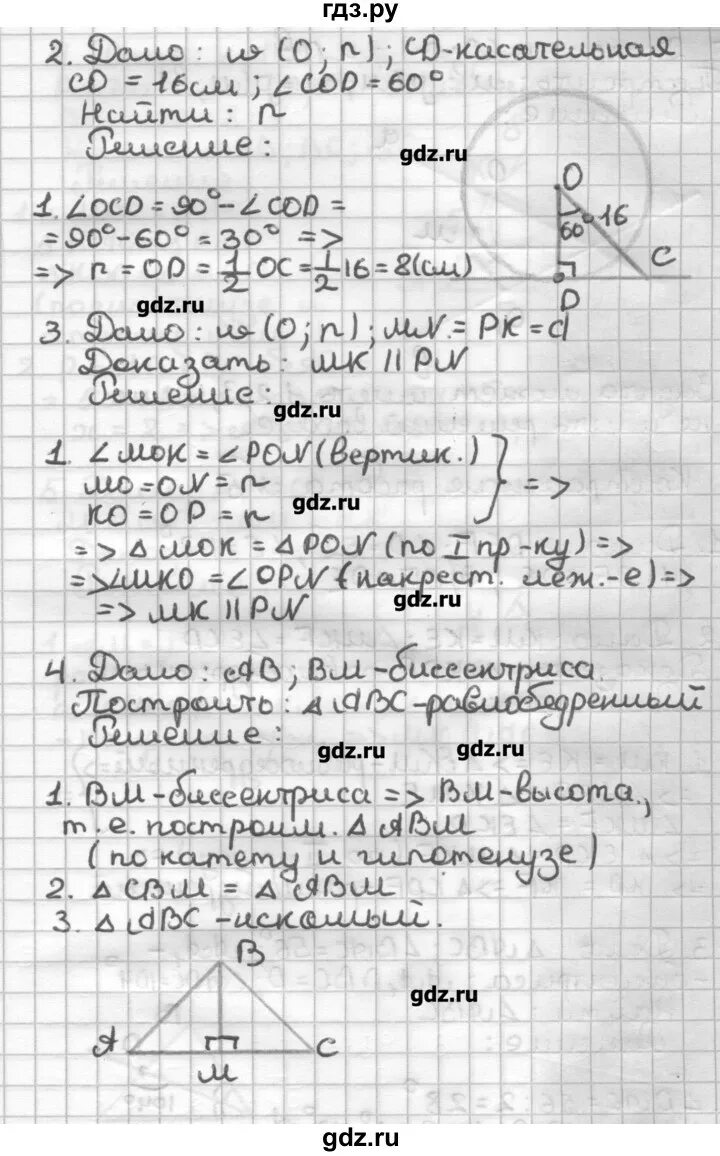 гдз.ру
2. Дано: w (O; r); CD-касательная
CO = 16см; ∠COD = 60°
Найти: r
Решение:
gdz.ru
O
60°
16
C
D
1. ∠OCD = 90° - ∠COD =
= 90° - 60° = 30° =>
=> r = OD = 1/2 OC = 1/2 16 = 8(см)
gdz.ru
3. Дано: w (O; r); MN = PK = d
Доказать: MK || PN
Решение:
gdz.ru
1. ∠MOK = ∠PON (вертик.)
MO = ON = r
KO = OP = r
} =>
gdz.ru
=> △ MOK = △ PON (по I пр-ку) =>
=> ∠MKO = ∠OPN (накрест. леж.-е) =>
=> MK || PN
gdz.ru
4. Дано: AB; BM-биссектриса.
Построить: △ ABC-равнобедренный
Решение:
gdz.ru
gdz.ru
1. BM-биссектриса => BM-высота.,
т.е. построим. △ ABM
(по катету и гипотенузе)
2. △ CBM = △ ABM
3. △ ABC -искомый.
B
A
M
C
gdz.ru
gdz.ru